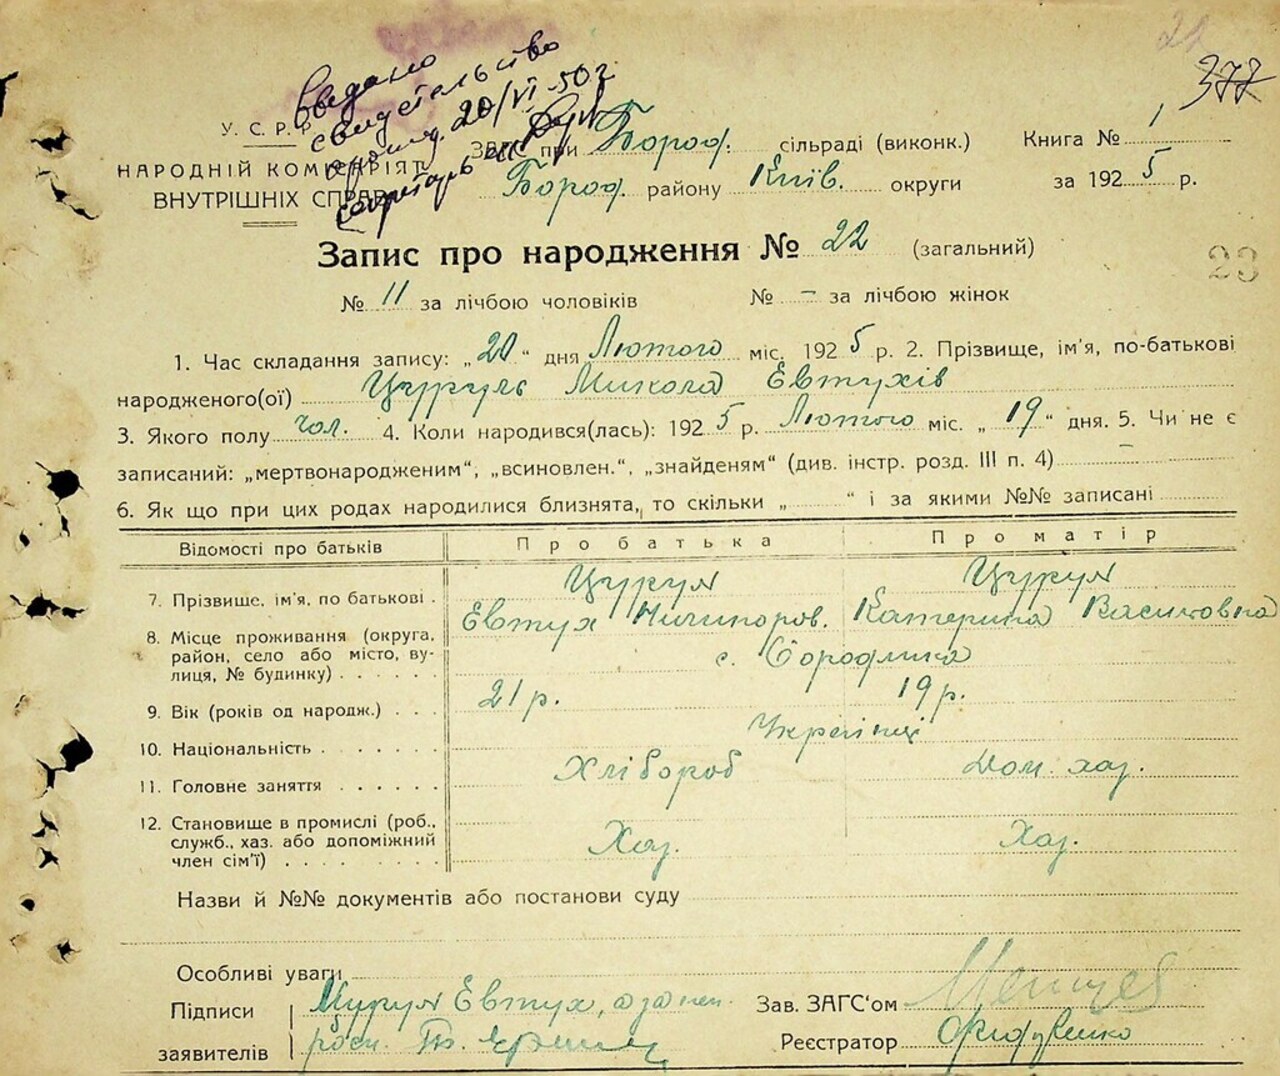 377
Видано
свидетельство
20/VI 50 г
секретарь
У. С. Р. Р.
НАРОДНІЙ КОМІСАРІЯТ
ВНУТРІШНІХ СПРАВ
ЗАГС при Бород. сільраді (виконк.)
Бород. району Київ. округи
Книга № 1
за 1925 р.
Запис про народження № 22 (загальний)
23
№ 11 за лічбою чоловіків № – за лічбою жінок
1. Час складання запису: „20“ дня Лютого міс. 1925 р. 2. Прізвище, ім'я, по-батькові
народженого(ої) Цуруль Микола Евтухів
3. Якого полу чол. 4. Коли народився(лась): 1925 р. Лютого міс. „19“ дня. 5. Чи не є
записаний: „мертвонародженим“, „всиновлен.“, „знайденям“ (див. інстр. розд. III п. 4) –
6. Як що при цих родах народилися близнята, то скільки „ “ і за якими №№ записані
Відомості про батьків Про батька Про матір
7. Прізвище, ім'я, по батькові . Цурул Евтух Ничипоров. Цурул Катерина Василовна
8. Місце проживання (округа,
район, село або місто, ву-
лиця, № будинку) . . . . . . с.
9. Вік (років од народж.) . . . 21 р. 19 р.
10. Національність . . . . . . . Українці
11. Головне заняття . . . . . . Хлібороб Дом. хаз.
12. Становище в промислі (роб.,
служб., хаз. або допоміжний
член сім'ї) . . . . . . . . . Хаз. Хаз.
Назви й №№ документів або постанови суду
Особливі уваги
Підписи Цурул Евтух, а за неп.
заявителів росп.
Зав. ЗАГС'ом
Реєстратор